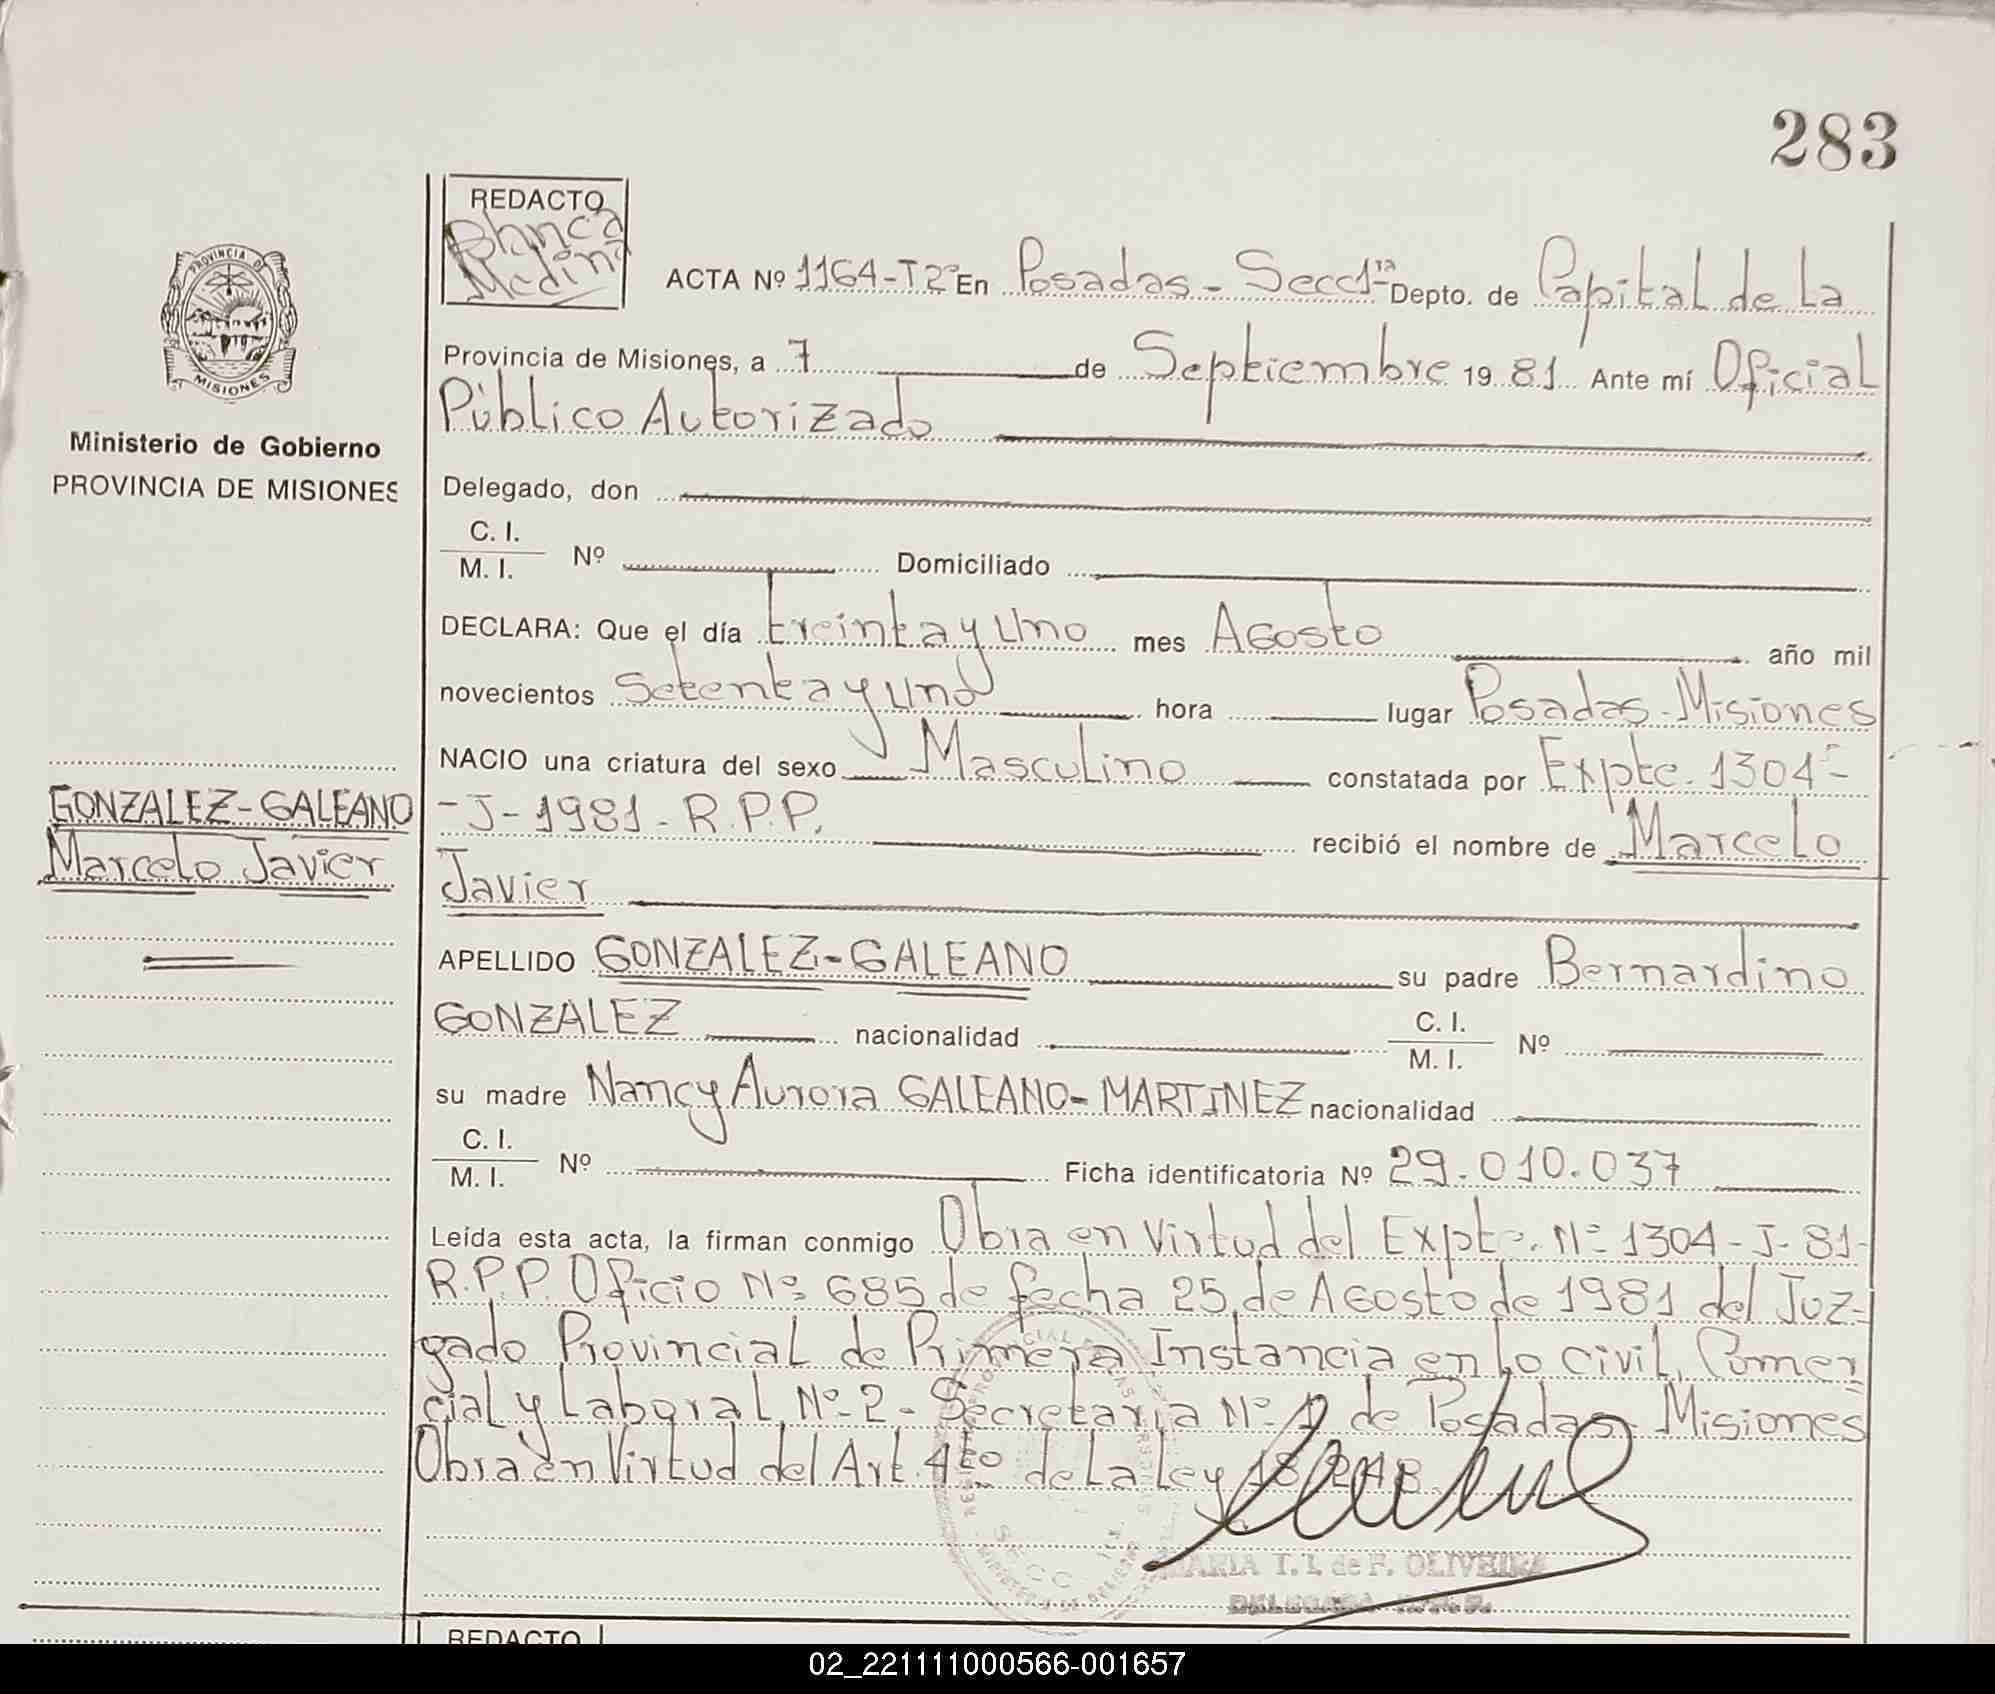 283
REDACTO
Blanca
Medina
ACTA Nº 1164-T2º En Posadas - Secc 1ª Depto. de Capital de La
Provincia de Misiones, a 7 de Septiembre 19 81 Ante mí Oficial
Público Autorizado
Delegado, don
C. I.
M. I. Nº Domiciliado
DECLARA: Que el día treinta y uno mes Agosto año mil
novecientos Setenta y uno hora lugar Posadas - Misiones
NACIO una criatura del sexo Masculino constatada por Expte. 1304-
- J - 1981 - R.P.P. recibió el nombre de Marcelo
Javier
APELLIDO GONZALEZ-GALEANO su padre Bernardino
GONZALEZ nacionalidad C. I.
M. I. Nº
su madre Nancy Aurora GALEANO-MARTINEZ nacionalidad
C. I.
M. I. Nº Ficha identificatoria Nº 29.010.037
Leída esta acta, la firman conmigo Obra en Virtud del Expte. Nº 1304 - J - 81 -
R.P.P. Oficio Nº 685 de fecha 25 de Agosto de 1981 del Juz-
gado Provincial de Primera Instancia en Lo Civil, Comer
cial y Laboral, Nº 2 - Secretaria Nº de Posadas Misiones
Obra en Virtud del Art. 4to de La Ley
MARIA I. I. de F. OLIVEIRA
PROVINCIA DE
MISIONES
Ministerio de Gobierno
PROVINCIA DE MISIONES
GONZALEZ-GALEANO
Marcelo Javier
REDACTO
02_221111000566-001657